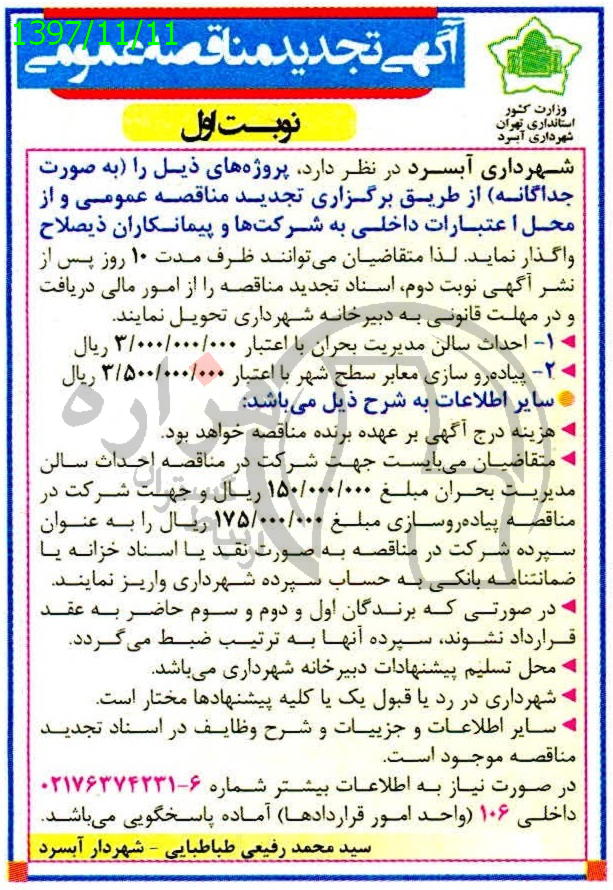 1397/11/11
آگهی تجدید مناقصه عمومی
وزارت کشور
استانداری تهران
شهرداری آبسرد
نوبت اول
شهرداری آبسرد در نظر دارد، پروژه‌های ذیل را (به صورت
جداگانه) از طریق برگزاری تجدید مناقصه عمومی و از
محل اعتبارات داخلی به شرکت‌ها و پیمانکاران ذیصلاح
واگذار نماید. لذا متقاضیان می‌توانند ظرف مدت ۱۰ روز پس از
نشر آگهی نوبت دوم، اسناد تجدید مناقصه را از امور مالی دریافت
و در مهلت قانونی به دبیرخانه شهرداری تحویل نمایند.
۱- احداث سالن مدیریت بحران با اعتبار ۳/۰۰۰/۰۰۰/۰۰۰ ریال
۲- پیاده‌رو سازی معابر سطح شهر با اعتبار ۳/۵۰۰/۰۰۰/۰۰۰ ریال
سایر اطلاعات به شرح ذیل می‌باشد:
هزینه درج آگهی بر عهده برنده مناقصه خواهد بود.
متقاضیان می‌بایست جهت شرکت در مناقصه احداث سالن
مدیریت بحران مبلغ ۱۵۰/۰۰۰/۰۰۰ ریال و جهت شرکت در
مناقصه پیاده‌روسازی مبلغ ۱۷۵/۰۰۰/۰۰۰ ریال را به عنوان
سپرده شرکت در مناقصه به صورت نقد یا اسناد خزانه یا
ضمانتنامه بانکی به حساب سپرده شهرداری واریز نمایند.
در صورتی که برندگان اول و دوم و سوم حاضر به عقد
قرارداد نشوند، سپرده آنها به ترتیب ضبط می‌گردد.
محل تسلیم پیشنهادات دبیرخانه شهرداری می‌باشد.
شهرداری در رد یا قبول یک یا کلیه پیشنهادها مختار است.
سایر اطلاعات و جزییات و شرح وظایف در اسناد تجدید
مناقصه موجود است.
در صورت نیاز به اطلاعات بیشتر شماره ۶-۰۲۱۷۶۳۷۴۲۳۱
داخلی ۱۰۶ (واحد امور قراردادها) آماده پاسخگویی می‌باشد.
سید محمد رفیعی طباطبایی - شهردار آبسرد
هزاره